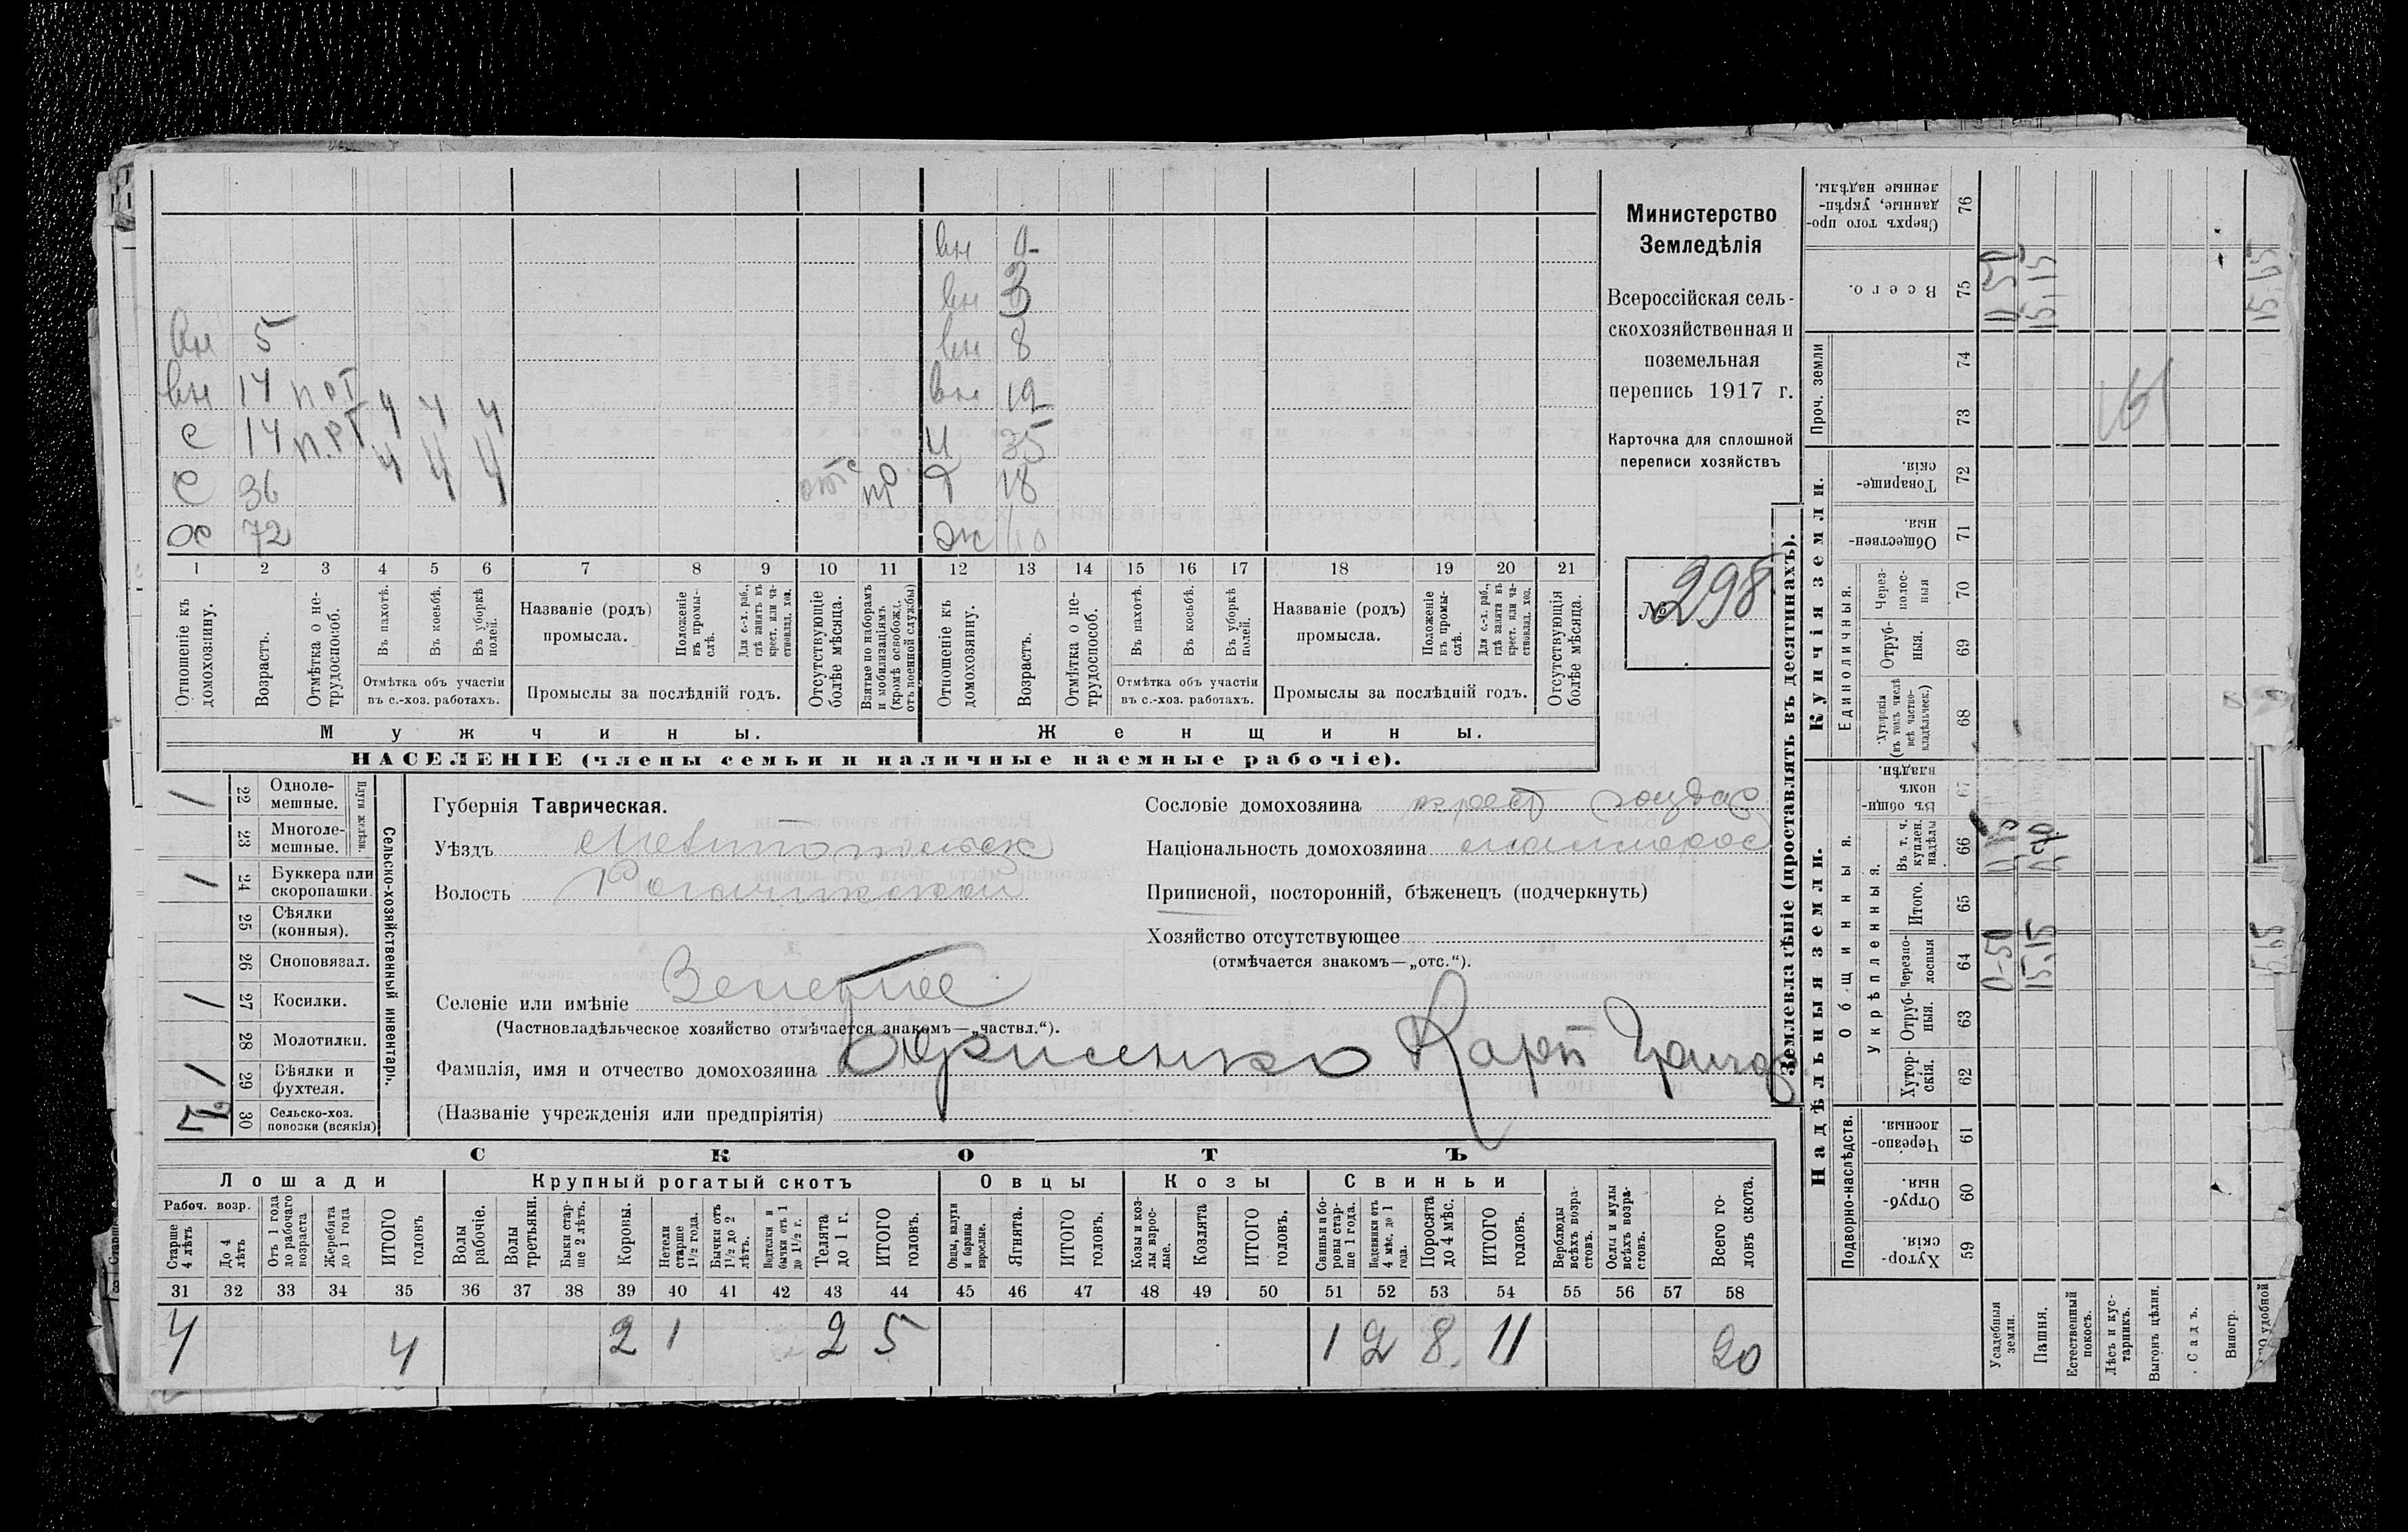 вн 0
вн 3
вн 5 вн 8
вн 14 4 4 4 вн 12
с 14 п.рт 4 4 4 ч 35
с 36 отс пр д 18
х 72 ж
1 2 3 4 5 6 7 8 9 10 11 12 13 14 15 16 17 18 19 20 21
Отношеніе къ домохозяину.
Возрастъ.
Отмѣтка о нетрудоспособ.
Въ пахотѣ.
Въ косьбѣ.
Въ уборкѣ полей.
Отмѣтка объ участіи въ с.-хоз. работахъ.
Названіе (родъ) промысла.
Положеніе въ промыслѣ.
Для с.-х. раб., гдѣ занятъ въ крест. или частновлад. хоз.
Промыслы за послѣдній годъ.
Отсутствующіе болѣе мѣсяца.
Взятые по наборамъ и мобилизаціямъ (кромѣ освобожд. отъ военной службы)
Отношеніе къ домохозяину.
Возрастъ.
Отмѣтка о нетрудоспособ.
Въ пахотѣ.
Въ косьбѣ.
Въ уборкѣ полей.
Отмѣтка объ участіи въ с.-хоз. работахъ.
Названіе (родъ) промысла.
Положеніе въ промыслѣ.
Для с.-х. раб., гдѣ занята въ крест. или частновлад. хоз.
Промыслы за послѣдній годъ.
Отсутствующія болѣе мѣсяца.
Мужчины. Женщины.
НАСЕЛЕНІЕ (члены семьи и наличные наемные рабочіе).
Министерство
Земледѣлія
Всероссійская сель-
скохозяйственная и
поземельная
перепись 1917 г.
Карточка для сплошной
переписи хозяйствъ
№ 298
Сельско-хозяйственный инвентарь.
Плуги желѣзн.
22 Однолемешные. 1
23 Многолемешные.
24 Буккера или скоропашки. 1
25 Сѣялки (конныя).
26 Сноповязал.
27 Косилки. 1
28 Молотилки.
29 Вѣялки и фухтеля. 1
30 Сельско-хоз. повозки (всякія)
Губернія Таврическая.
Уѣздъ Мелитопольск
Волость Рогачикской
Селеніе или имѣніе
(Частновладѣльческое хозяйство отмѣчается знакомъ—„частвл.“).
Фамилія, имя и отчество домохозяина Борисенко Карп Григор
(Названіе учрежденія или предпріятія)
Сословіе домохозяина крест
Національность домохозяина малорос
Приписной, посторонній, бѣженецъ (подчеркнуть)
Хозяйство отсутствующее
(отмѣчается знакомъ—„отс.“).
СКОТЪ
Лошади Крупный рогатый скотъ Овцы Козы Свиньи
Рабоч. возр.
Старше 4 лѣтъ
До 4 лѣтъ
Отъ 1 года до рабочаго возраста
Жеребята до 1 года
ИТОГО головъ
Волы рабочіе.
Волы третьяки.
Быки старше 2 лѣтъ.
Коровы.
Нетели старше 1½ года.
Бычки отъ 1½ до 2 лѣтъ.
Подтелки и бычки отъ 1 до 1½ г.
Телята до 1 г.
ИТОГО головъ.
Овцы, валухи и бараны взрослые.
Ягнята.
ИТОГО головъ.
Козы и козлы взрослые.
Козлята
ИТОГО головъ.
Свиньи и боровы старше 1 года.
Подсвинки отъ 4 мѣс. до 1 года.
Поросята до 4 мѣс.
ИТОГО головъ.
Верблюды всѣхъ возрастовъ.
Ослы и мулы всѣхъ возрастовъ.
Всего головъ скота.
31 32 33 34 35 36 37 38 39 40 41 42 43 44 45 46 47 48 49 50 51 52 53 54 55 56 57 58
4 4 2 1 2 5 1 2 8 11 20
Землевладѣніе (проставлять въ десятинахъ).
Надѣльныя земли. Купчія земли.
Подворно-наслѣдств.
Общинныя.
Укрѣпленныя.
Единоличныя.
Проч. земли
59 Хуторскія
60 Отрубныя.
61 Черезполосныя.
62 Хуторскія.
63 Отрубныя.
64 Черезполосныя
65 Итого.
66 Въ т. ч. куплен. надѣлы
67 Въ общинномъ владѣн.
68 Хуторскія (въ томъ числѣ всѣ частновладѣльческ.)
69 Отрубныя.
70 Черезполосныя
71 Общественныя.
72 Товарищескія.
73
74
75 Всего.
76 Сверхъ того проданные, укрѣпленные надѣлы.
Усадебная земли. 0-50 0,50
Пашня. 15,15 15,15
Естественный покосъ.
Лѣсъ и кустарникъ.
Выгонъ цѣлин.
Садъ.
Виногр.
удобной 15,65